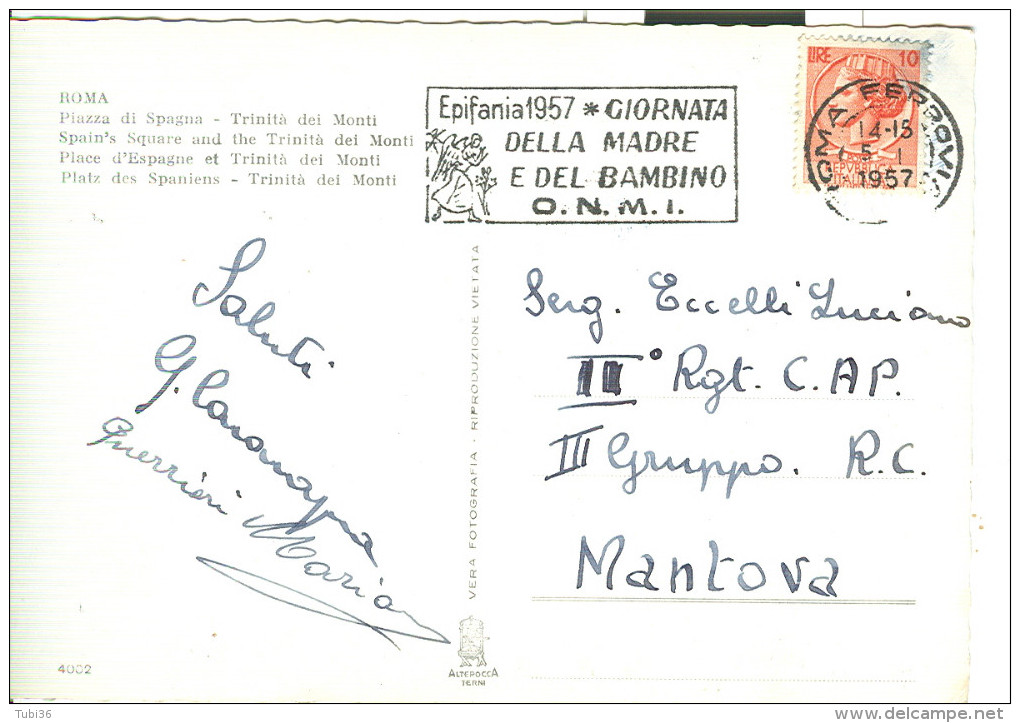 ROMA
Piazza di Spagna - Trinità dei Monti
Spain's Square and the Trinità dei Monti
Place d'Espagne et Trinità dei Monti
Platz des Spaniens - Trinità dei Monti
Epifania 1957 * GIORNATA
DELLA MADRE
E DEL BAMBINO
O.N.M.I.
LIRE 10
ROMA FERROVIA
14-15
5 - 1
1957
REPVBBLICA
ITALIANA
Saluti
G.
Guerrieri Maria
VERA FOTOGRAFIA - RIPRODUZIONE VIETATA
Serg. Eccelli Luciano
II° Rgt. C.AP.
III Gruppo. R.C.
Mantova
4002
ALTEROCCA
TERNI
Tubi36
www.delcampe.net